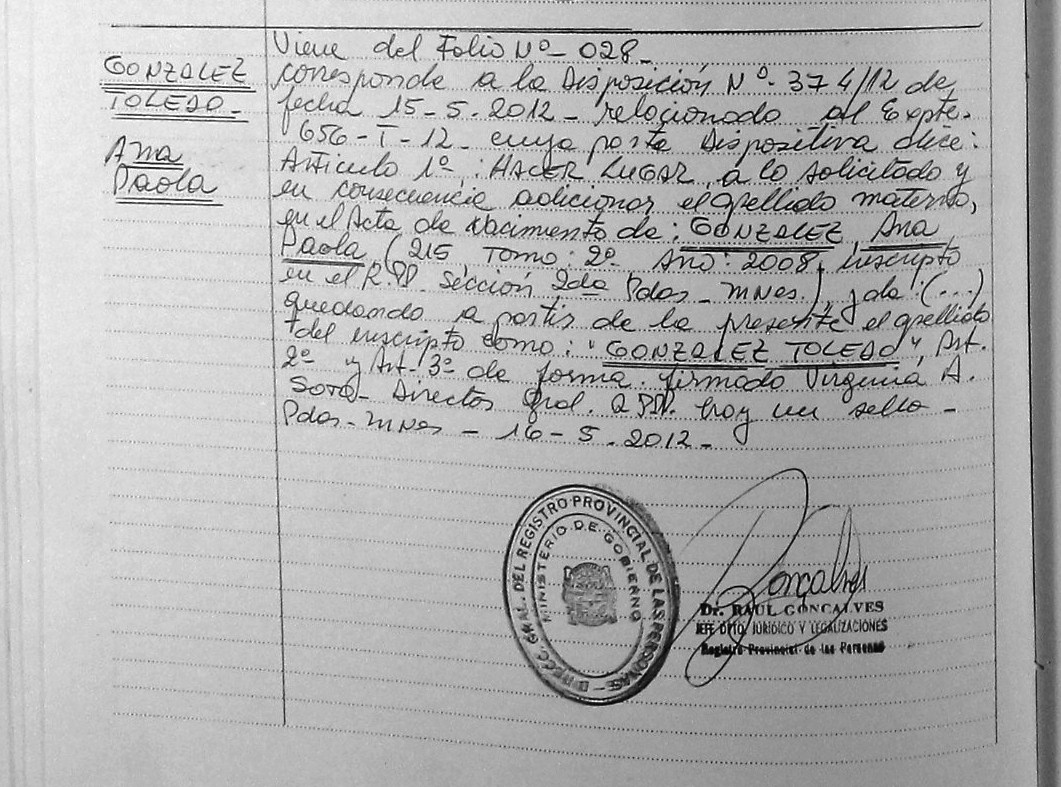 GONZALEZ
TOLEDO-
Ana
Paola
Viene del Folio Nº- 028-
corresponde a la Disposición Nº- 374/12 de
fecha 15-5-2012- relacionado al Expte-
656-T-12- cuya parte Dispositiva dice:
Articulo 1º: HACER LUGAR, a lo solicitado y
en consecuencia adicionar el apellido materno,
en el Acta de Nacimiento de: GONZALEZ, Ana
Paola (215 Tomo: 2º Año: 2008, inscripto
en el R.P.P. Sección 2da Pdas- MNes.) y da: (...)
quedando a partir de la presente el apellido
del inscripto como: "GONZALEZ TOLEDO", Art.
2º y Art- 3º de forma. firmado Virginia A.
SOTO- Director Gral. R.P.P. hay un sello-
Pdas- MNes - 16-5-2012-
DIRECC. GRAL. DEL REGISTRO PROVINCIAL DE LAS PERSONAS -
MINISTERIO DE GOBIERNO
Gonçalves
Dr. RAUL GONCALVES
JEFE DPTO. JURIDICO Y LEGALIZACIONES
Registro Provincial de las Personas